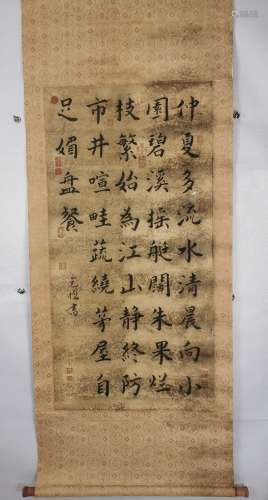 仲夏多流水清晨向小
園碧溪搖艇闊朱果爛
枝繁始為江山靜終防
市井喧畦蔬繞茅屋自
足媚盤餐
書